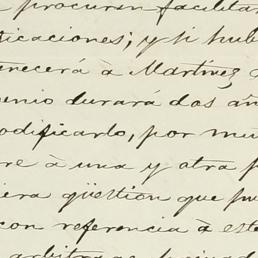 procuran facilita
icaciones; y si hub
enecerá à Martinez
enio durará dos añ
odificarlo, por mu
re à una y otra p
iera qüestion que
con referencia à este